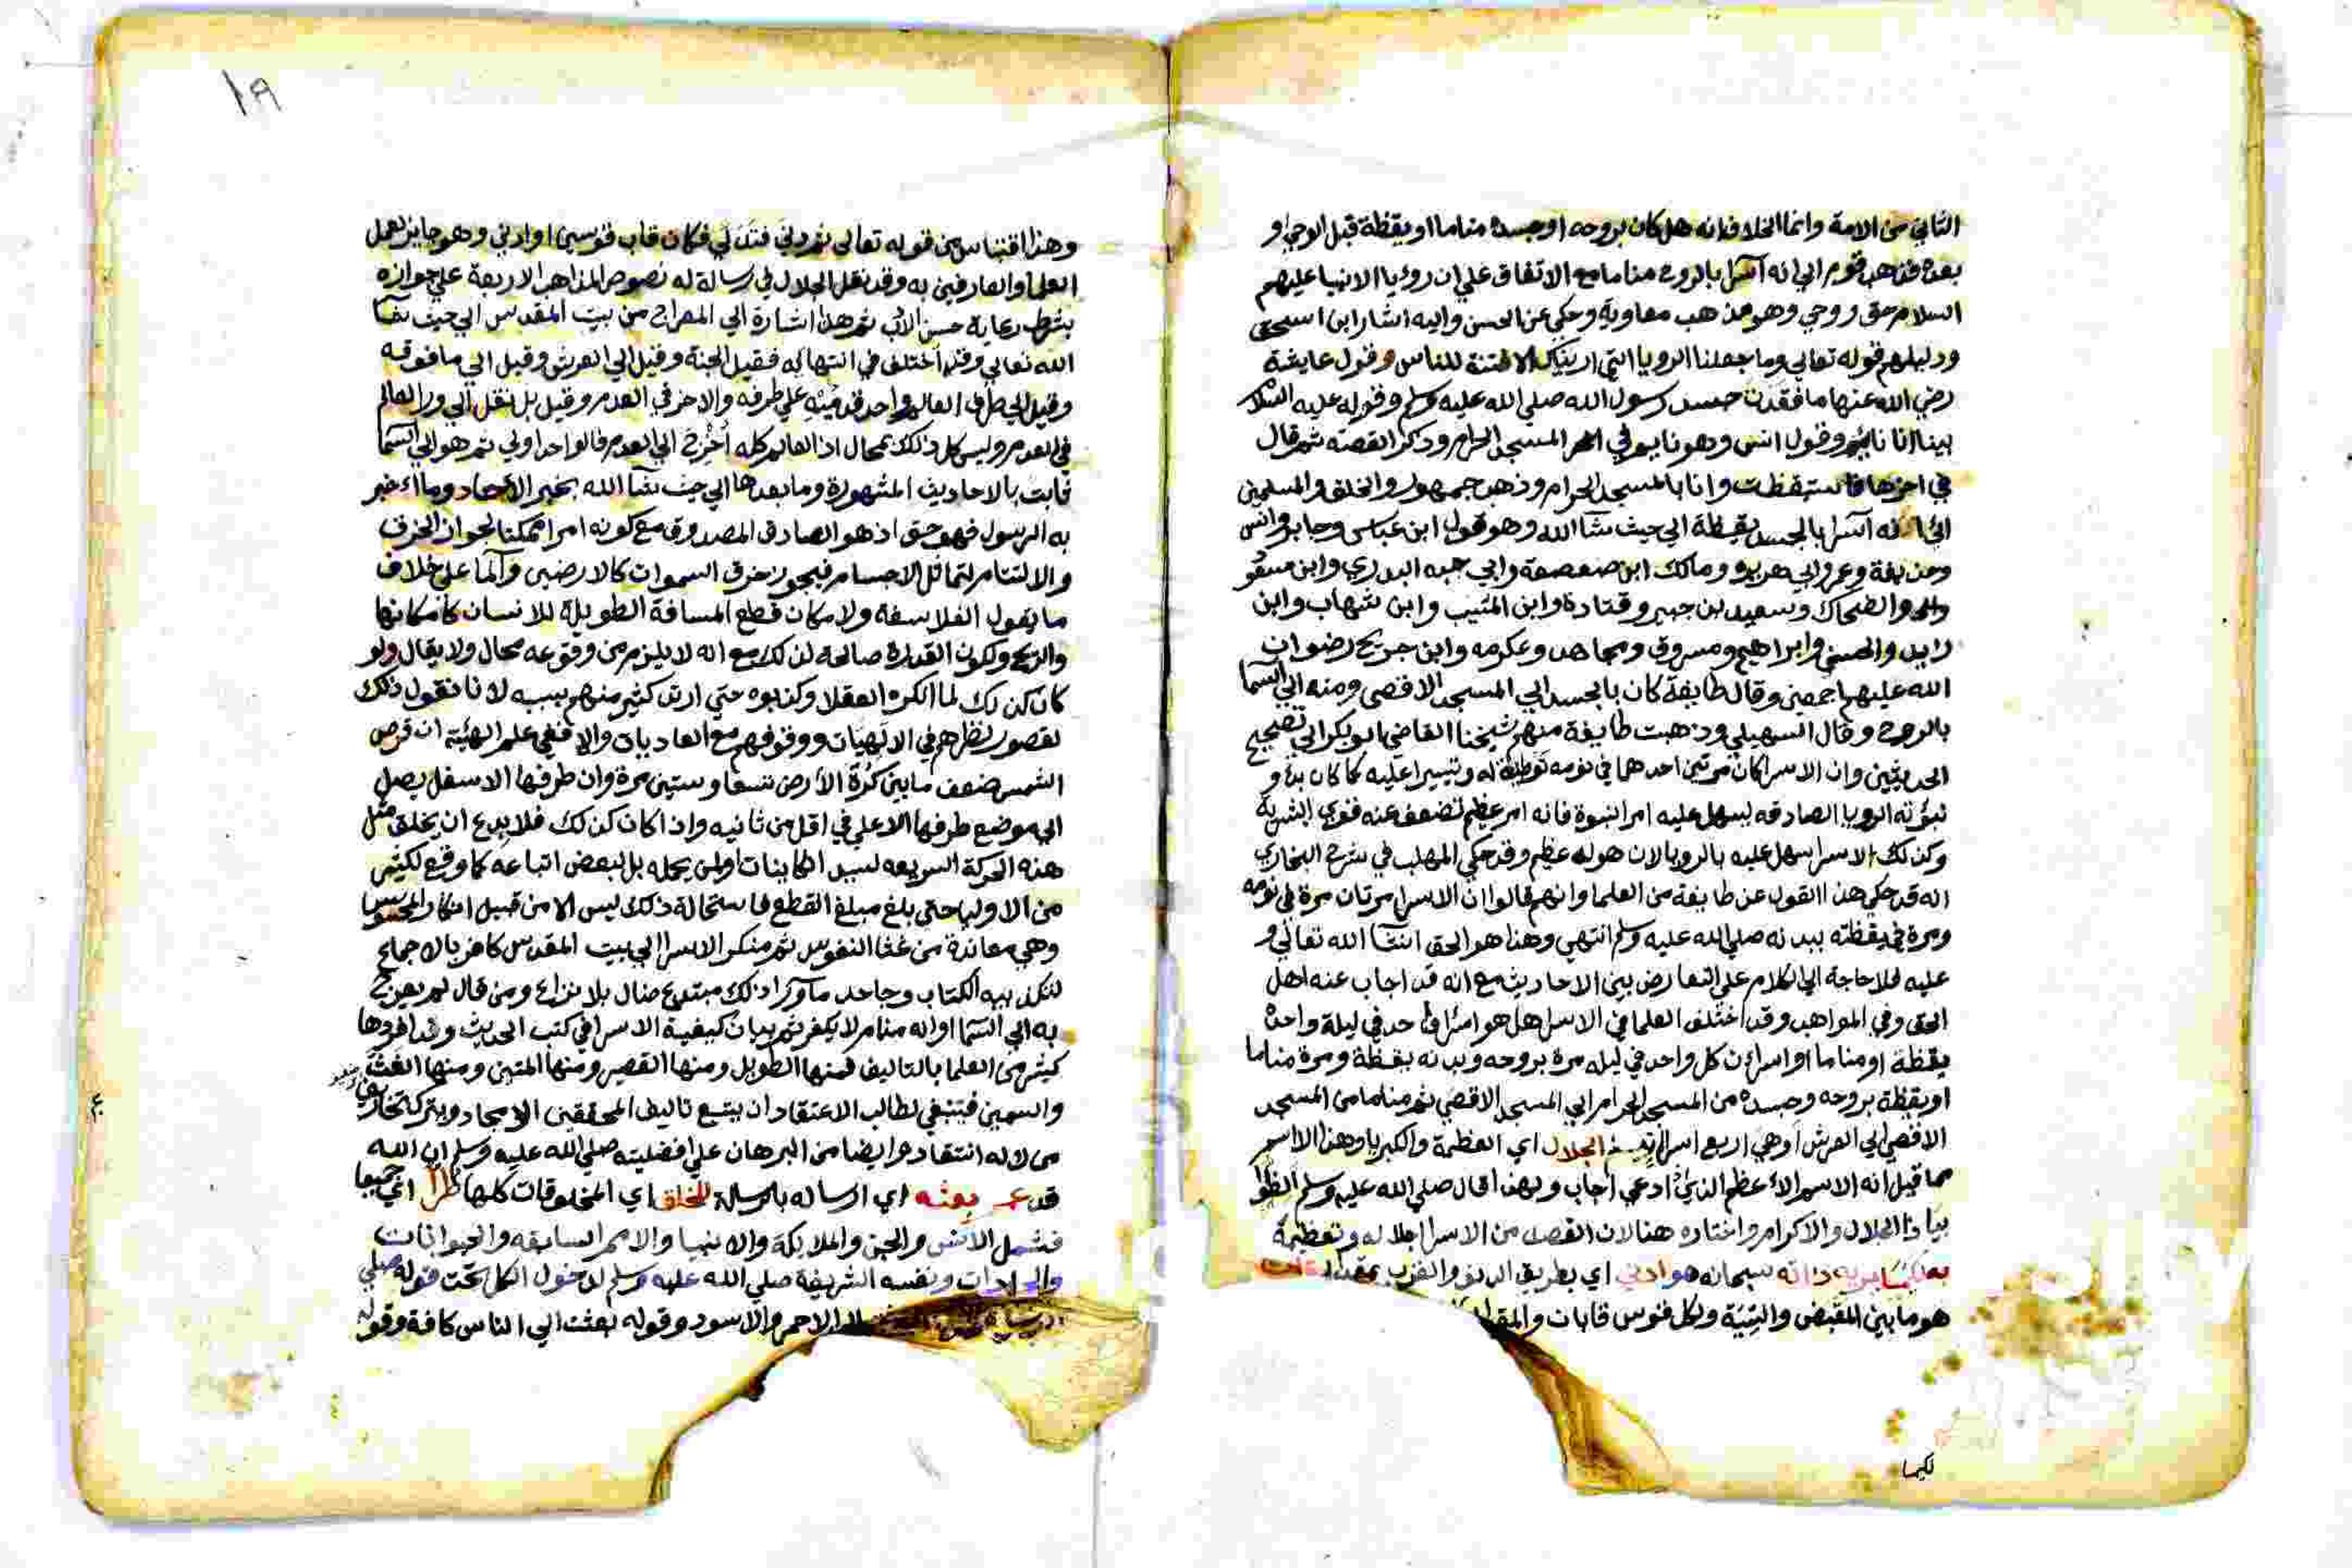 الثاني من الامة وانما الخلاف انه هل كان بروحه او جسده مناما او يقظة قبل الوحي او
بعده فذهب قوم الي انه اسرا بالروح مناما مع الاتفاق علي ان رؤيا الانبيا عليهم
السلام حق ووحي وهو مذهب معاوية وحكي عن الحسن واليه اشار ابن اسحق
ودليلهم قوله تعالي وما جعلنا الرويا التي اريناك الا فتنة للناس وقول عايشة
رضي الله عنها ما فقدت جسد رسول الله صلي الله عليه وسلم وقوله عليه السلام
بينا انا نائم وقول انس وهو نايم في المسجد الحرام وذكر القصة ثم قال
في اخرها فاستيقظت وانا بالمسجد الحرام وذهب جمهور والخلف والمسلمين
الي انه اسرا بالجسد يقظة الي حيث شا الله وهو قول ابن عباس وجابر وانس
وحذيفة وعمر وابي هريره ومالك ابن صعصعة وابي حبه البدري وابن مسعود
والضحاك وسعيد بن جبير وقتادة وابن المسيب وابن شهاب وابن
زايد والحسن وابراهيم ومسروق ومجاهد وعكرمه وابن جريح رضوان
الله عليهم اجمعين وقال طايفة كان بالجسد الي المسجد الاقصي ومنه الي السما
بالروح وقال السهيلي وذهبت طايفة منهم شيخنا القاضي ابو بكر الي تصحيح
الحديثين وان الاسرا كان مرتين احدهما في نومه توطئة له وتيسيرا عليه كما كان بدؤ
نبوته الرويا الصادقه ليسهل عليه امر النبوة فانه امر عظيم تضعف عنه قوي البشرية
وكذلك الاسرا سهل عليه بالرويا لان هوله عظيم وقد حكي المهلب في شرح البخاري
انه قد حكي هذا القول عن طايفة من العلما وانهم قالوا ان الاسرا مرتان مرة في نومه
ومرة في يقظته ببدنه صلي الله عليه وسلم انتهي وهذا هو الحق انشا الله تعالي و
عليه فلا حاجة الي الكلام علي التعارض بين الاحاديث مع انه قد اجاب عنه اهل
الحق وفي المواهب وقد اختلف العلما في الاسرا هل هو اسرا واحد في ليلة واحدة
يقظة او مناما او اسراان كل واحد في ليله مرة بروحه وبدنه يقظة ومرة مناما
او يقظة بروحه وجسده من المسجد الحرام الي المسجد الاقصي ثم مناما من المسجد
الاقصي الي العرش او هي اربع اسراات الجلال اي العظمة والكبريا وهذا الاسم
مما قيل انه الاسم الاعظم الذي اذا دعي اجاب ولهذا قال صلي الله عليه وسلم الظوا
بيا ذا الجلال والاكرام واختاره هنا لان القصد من الاسرا اجلاله وتعظيمه
به لكيما يريه ذاته سبحانه هو ادني اي بطريق الدنو والقرب بمقدار
هو ما بين المقبض والسية ولكل قوس قابان
لكيما
١٩
وهذا اقتباس من قوله تعالي ثم دني فتدلي فكان قاب قوسين او ادني وهو جايز لعمل
العلما والعارفين به وقد نقل الجلال في رسالة له نصوص المذاهب الاربعة علي جوازه
بشرط رعاية حسن الادب ثم هذا اشارة الي المعراج من بيت المقدس الي حيث شا
الله تعالي وقد اختلف في انتهائه فقيل الجنة وقيل الي العرش وقيل الي ما فوقه
وقيل الي طرف العالم واحد قدميه علي طرفه والاخر في العدم وقيل بل نقل الي ورا العالم
في العدم وليس كل ذلك بمحال اذ العالم كله اخرج الي العدم فالواحد اولي ثم هو الي السما
ثابت بالاحاديث المشهورة وما بعدها الي حيث شا الله بخبر الاحاد وما اخبر
به الرسول فهو حق اذ هو الصادق المصدوق مع كونه امرا ممكنا لجواز الخرق
والالتئام لتماثل الاجسام فيجوز خرق السموات كالارضين والما علي خلاف
ما يقول الفلاسفه ولامكان قطع المسافة الطويلة للانسان كامكانها
والريح ولكون القدرة صالحه لذلك مع انه لا يلزم من وقوعه محال ولا يقال ولو
كان كذلك لما انكره العقلا وكذبوه حتي ارتد كثير منهم بسببه لانا نقول ذلك
لقصور نظرهم في الالهيات ووقوفهم مع العاديات والا ففي علم الهيئة ان قرص
الشمس ضعف ما بين كرة الارض نيفا وستين مرة وان طرفها الاسفل يصل
الي موضع طرفها الاعلي في اقل من ثانيه واذا كان كذلك فلا بدع ان يخلق مثل
هذه الحركة السريعه لسيد الكاينات او لمن يحمله بل لبعض اتباعه كما وقع لكثير
من الاوليا حتي بلغ مبلغ القطع فاستحالة ذلك ليس الا من قبيل انكار المحسوس
وهي معاندة من غثا النفوس ثم منكر الاسرا الي بيت المقدس كافر بالاجماع
لتكذيبه الكتاب وجاحد ما ورا ذلك مبتدع ضال بلا نزاع ومن قال لم يعرج
به الي السما او انه منام لا يكفر ثم بيان كيفية الاسرا في كتب الحديث وقد افردها
كثير من العلما بالتاليف فمنها الطويل ومنها القصير ومنها المتين ومنها الغث
والسمين فينبغي لطالب الاعتقاد ان يتتبع تاليف المحققين الامجاد ويترك
من لا له انتقاد وايضا من البرهان علي افضليته صلي الله عليه وسلم ان الله
قد عم بعثه اي ارساله بالرسالة للخلق اي المخلوقات كلها طرا اي جميعا
فشمل الانس والجن والملايكة والانبيا والامم السابقه والحيوانات
والجمادات ونفسه الشريفة صلي الله عليه وسلم لدخول الكل تحت قوله صلي
الاحمر والاسود وقوله بعثت الي الناس كافة وقوله